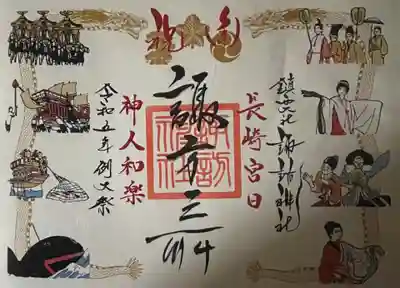 鎮西大社 諏訪神社
長崎宮日
諏方三所
諏訪神社
神人和楽
令和五年例大祭